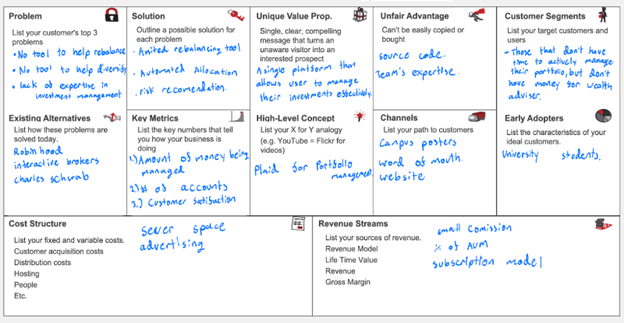 Problem
List your customer's top 3
problems
• No tool to help rebalance
• No tool to help diversify
• lack of expertise in
investment management
Existing Alternatives
List how these problems are
solved today.
Robinhood
interactive brokers
charles schwab
Solution
Outline a possible solution for
each problem
• Amited rebalancing tool
• Automated Allocation
• risk recomendation.
Key Metrics
List the key numbers that tell
you how your business is
doing
1.) Amount of money being
managed
2.) # of accounts
3.) Customer satisfaction
Unique Value Prop.
Single, clear, compelling
message that turns an
unaware visitor into an
interested prospect
A single platform that
allows user to manage
their investments effectively.
High-Level Concept
List your X for Y analogy
(e.g. YouTube = Flickr for
videos)
Plaid for Portfolio
management.
Unfair Advantage
Can't be easily copied or
bought
source code.
Team's expertise.
Channels
List your path to customers
Campus posters
word of mouth.
website
Customer Segments
List your target customers and
users
- Those that don't have
time to actively manage
their portfolio, but don't
have money for wealth
adviser.
Early Adopters
List the characteristics of your
ideal customers.
University students.
Cost Structure
List your fixed and variable costs.
Customer acquisition costs
Distribution costs
Hosting
People
Etc.
sever space
advertising
Revenue Streams
List your sources of revenue.
Revenue Model
Life Time Value
Revenue
Gross Margin
small Comission
% of AUM
subscription model